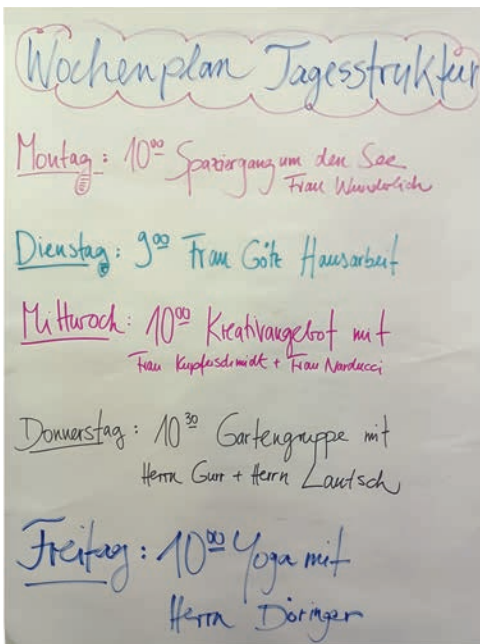 Wochenplan Tagesstruktur
Montag: 10⁰⁰ Spaziergang um den See
Frau Wunderlich
Dienstag: 9⁰⁰ Frau Götz Hausarbeit
Mittwoch: 10⁰⁰ Kreativangebot mit
Frau Kupferschmidt + Frau Narducci
Donnerstag: 10³⁰ Gartengruppe mit
Herrn Gurr + Herrn Lautsch
Freitag: 10⁰⁰ Yoga mit
Herrn Döringer